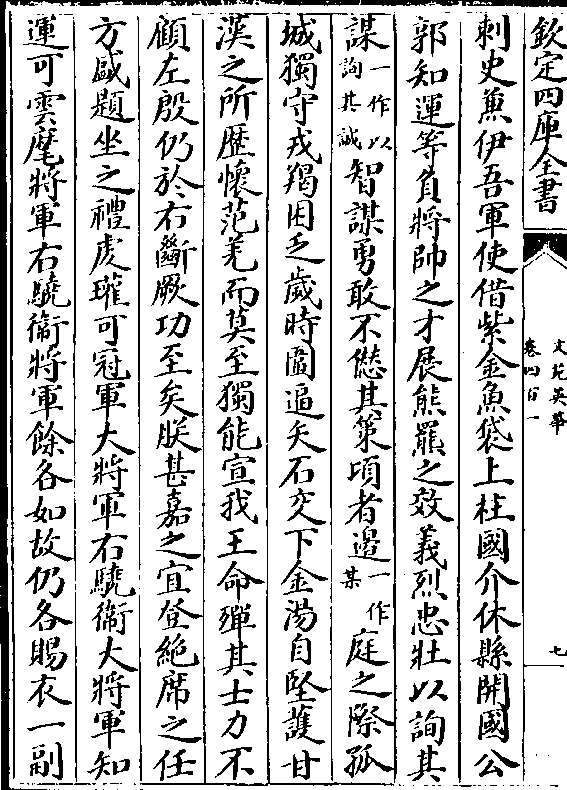 欽定四庫全書
文苑英華
卷四百一
七
刺史兼伊吾軍使借紫金魚袋上柱國介休縣開國公
郭知運等負將帥之才展熊羆之效義烈忠壯以詢其
謀一作以詢其誠智謀勇敢不愆其策頃者邉一作某庭之際孤
城獨守戎羯困乏歲時圍逼矢石交下金湯自堅護甘
漠之所歴懷范羌而莫至獨能宣我王命殫其士力不
顧左殷仍於右斷厥功至矣朕甚嘉之宜登絶席之任
方盛題坐之禮虔瓘可冠軍大將軍右驍衞大將軍知
運可雲麾將軍右驍衞將軍餘各如故仍各賜衣一副